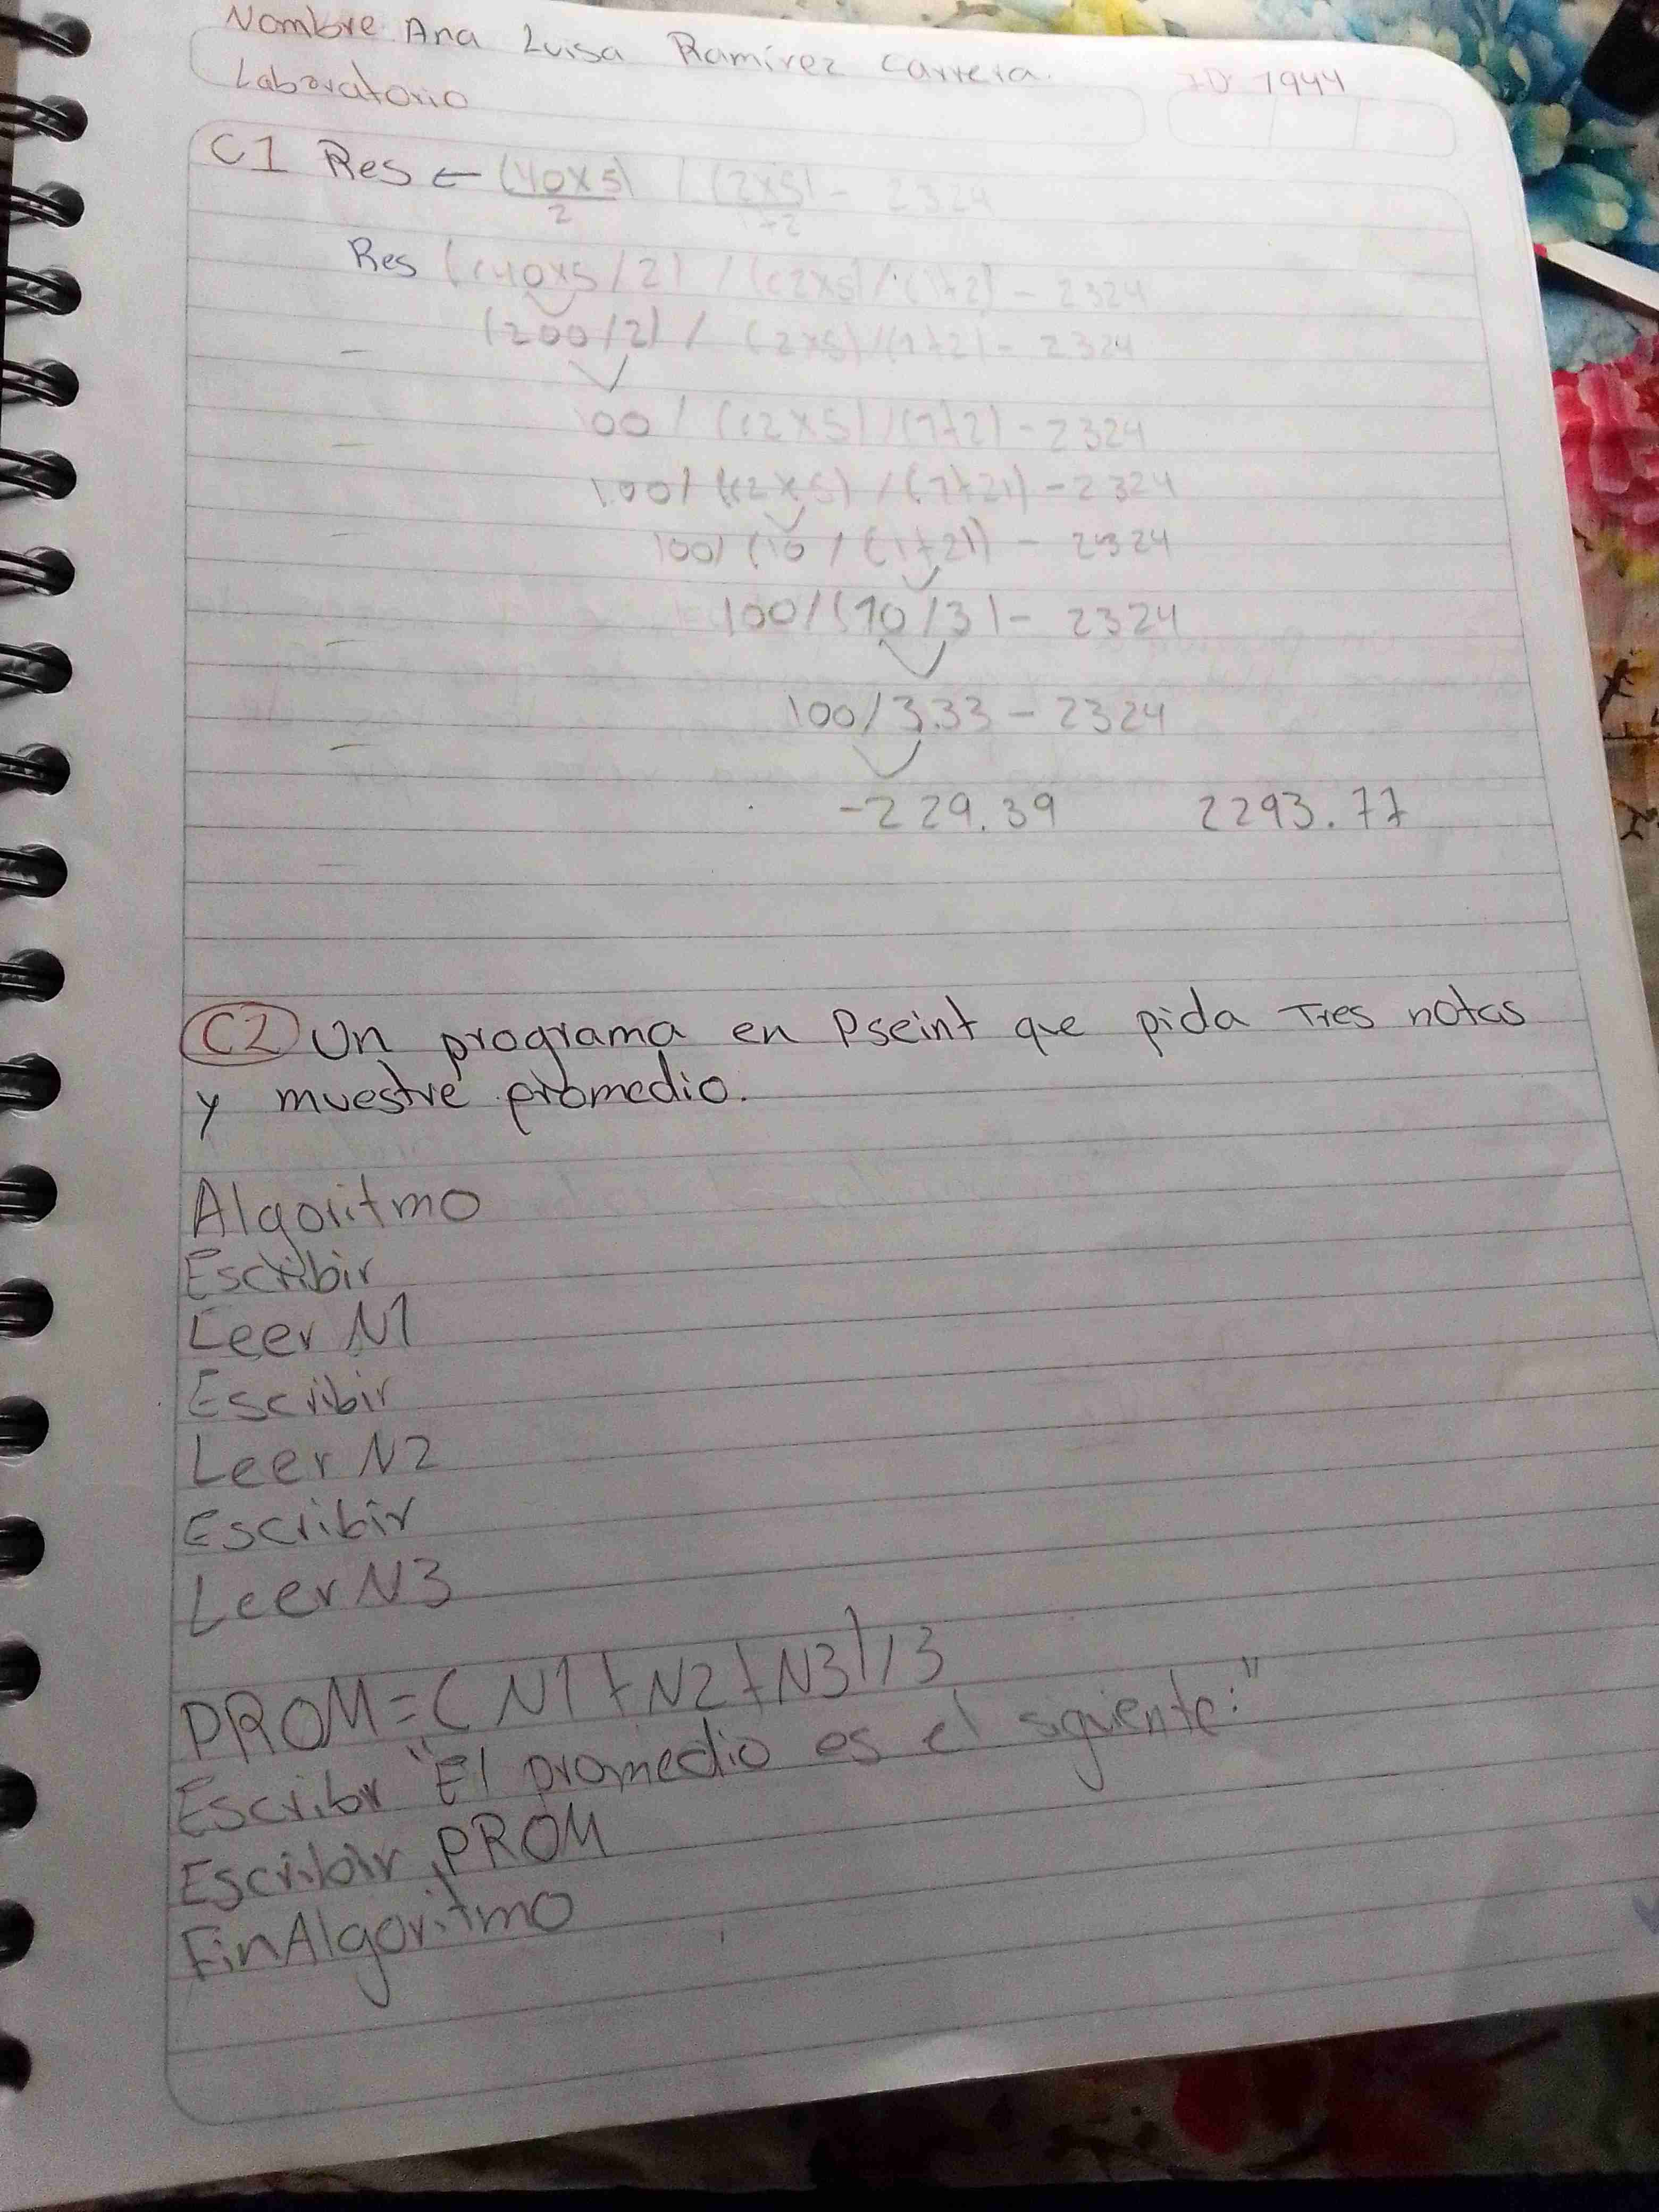 Nombre Ana Luisa Ramírez Carrera. ID 1944
Laboratorio
C1 Res ← (40x5) / (2x5) - 2324
2 1+2
Res ((40x5/2) / ((2x5)/(1+2) - 2324
(200/2) / (2x5)/(1+2) - 2324
100 / ((2x5)/(1+2) - 2324
100 / ((2x5) / (1+2)) - 2324
100/ (10 / (1+2)) - 2324
100/(10/3) - 2324
100/3.33 - 2324
-229.39 2293.77
C2 Un programa en Pseint que pida Tres notas
y muestre promedio.
Algoritmo
Escribir
Leer N1
Escribir
Leer N2
Escribir
Leer N3
PROM=(N1+N2+N3)/3
Escribr "El promedio es el siguiente:"
Escribir PROM
FinAlgoritmo